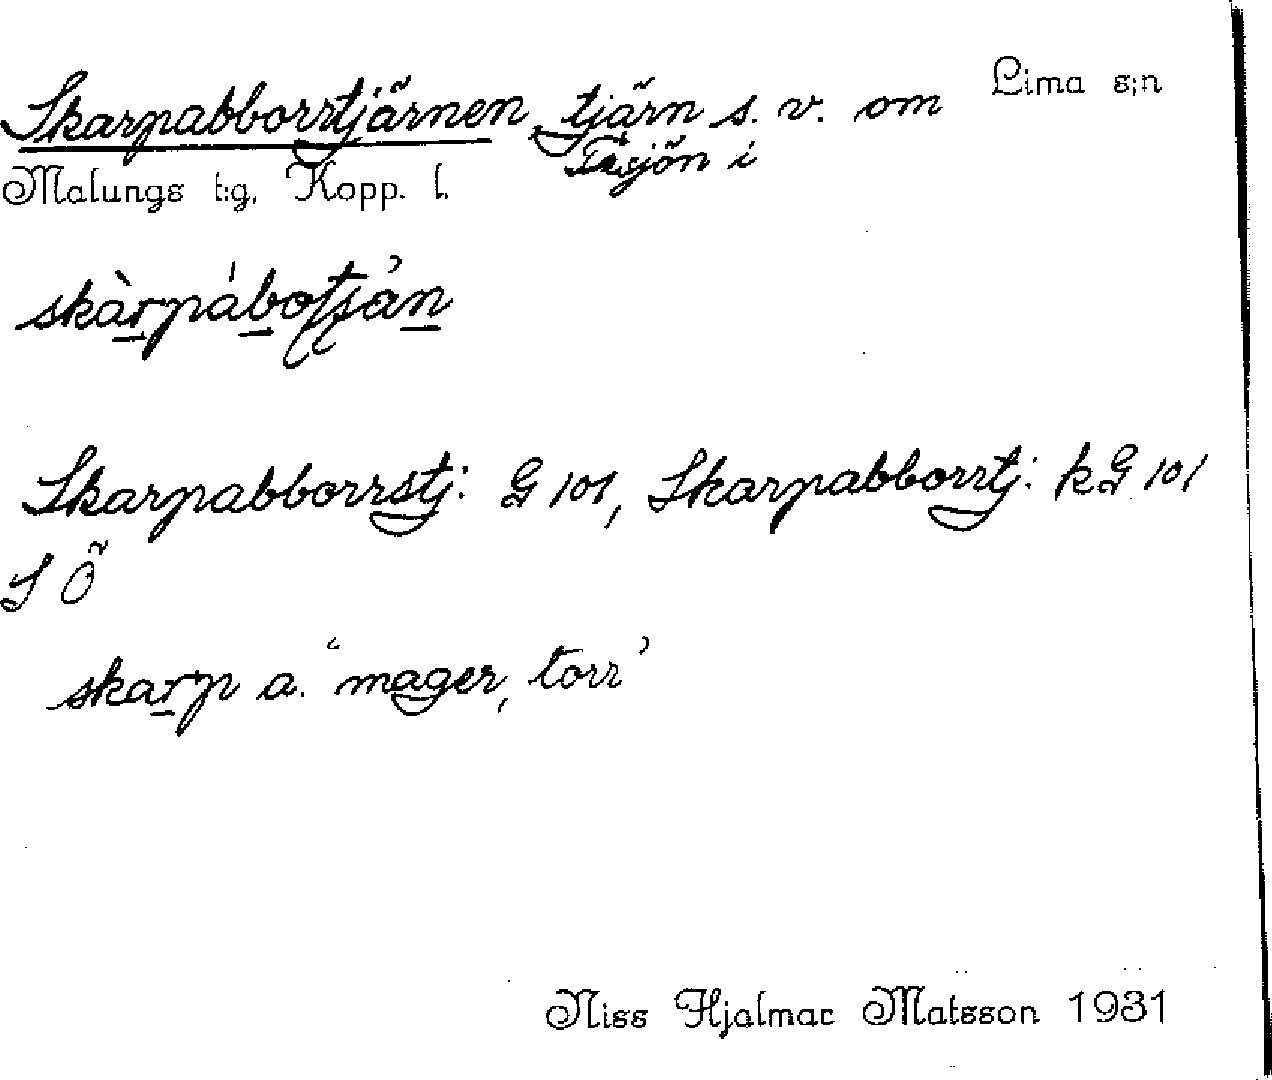 Skarpabborrtjärnen, tjärn s. v. om Lima s:n
Tisjön i
Malungs t:g, Kopp. l.
Skarpabborrstj: G 101, Skarpabborrtj: kG 101
S Ö
skarp a. ‘mager, torr’
Niss Hjalmar Matsson 1931